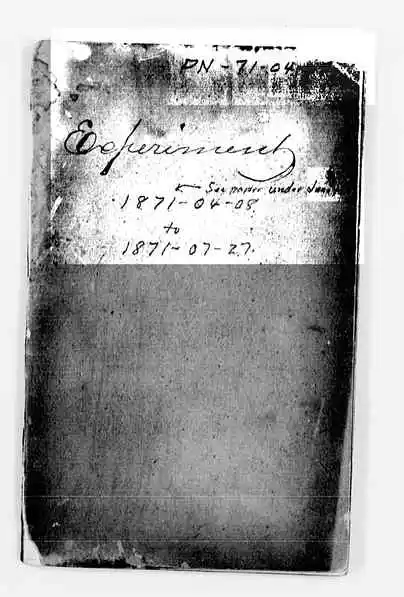 PN-71-04
Experiment
← See under
1871-04-08
to
1871-07-27.